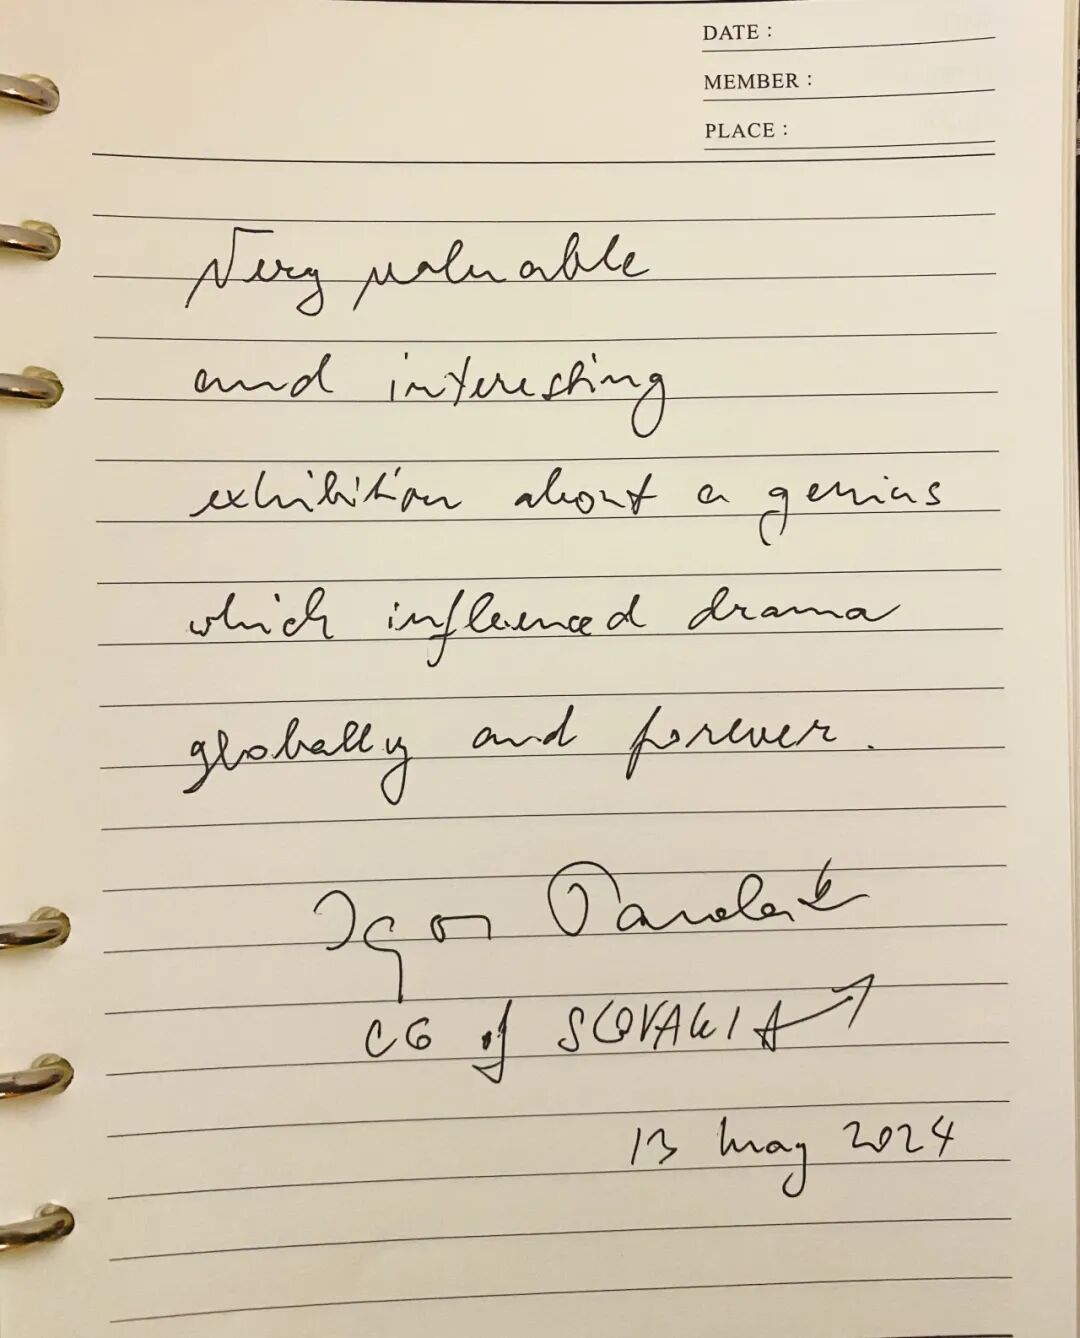 DATE :
MEMBER :
PLACE :
Very valuable
and interesting
exhibition about a genius
which influenced drama
globally and forever.
Igor
CG of SLOVAKIA
13 May 2024